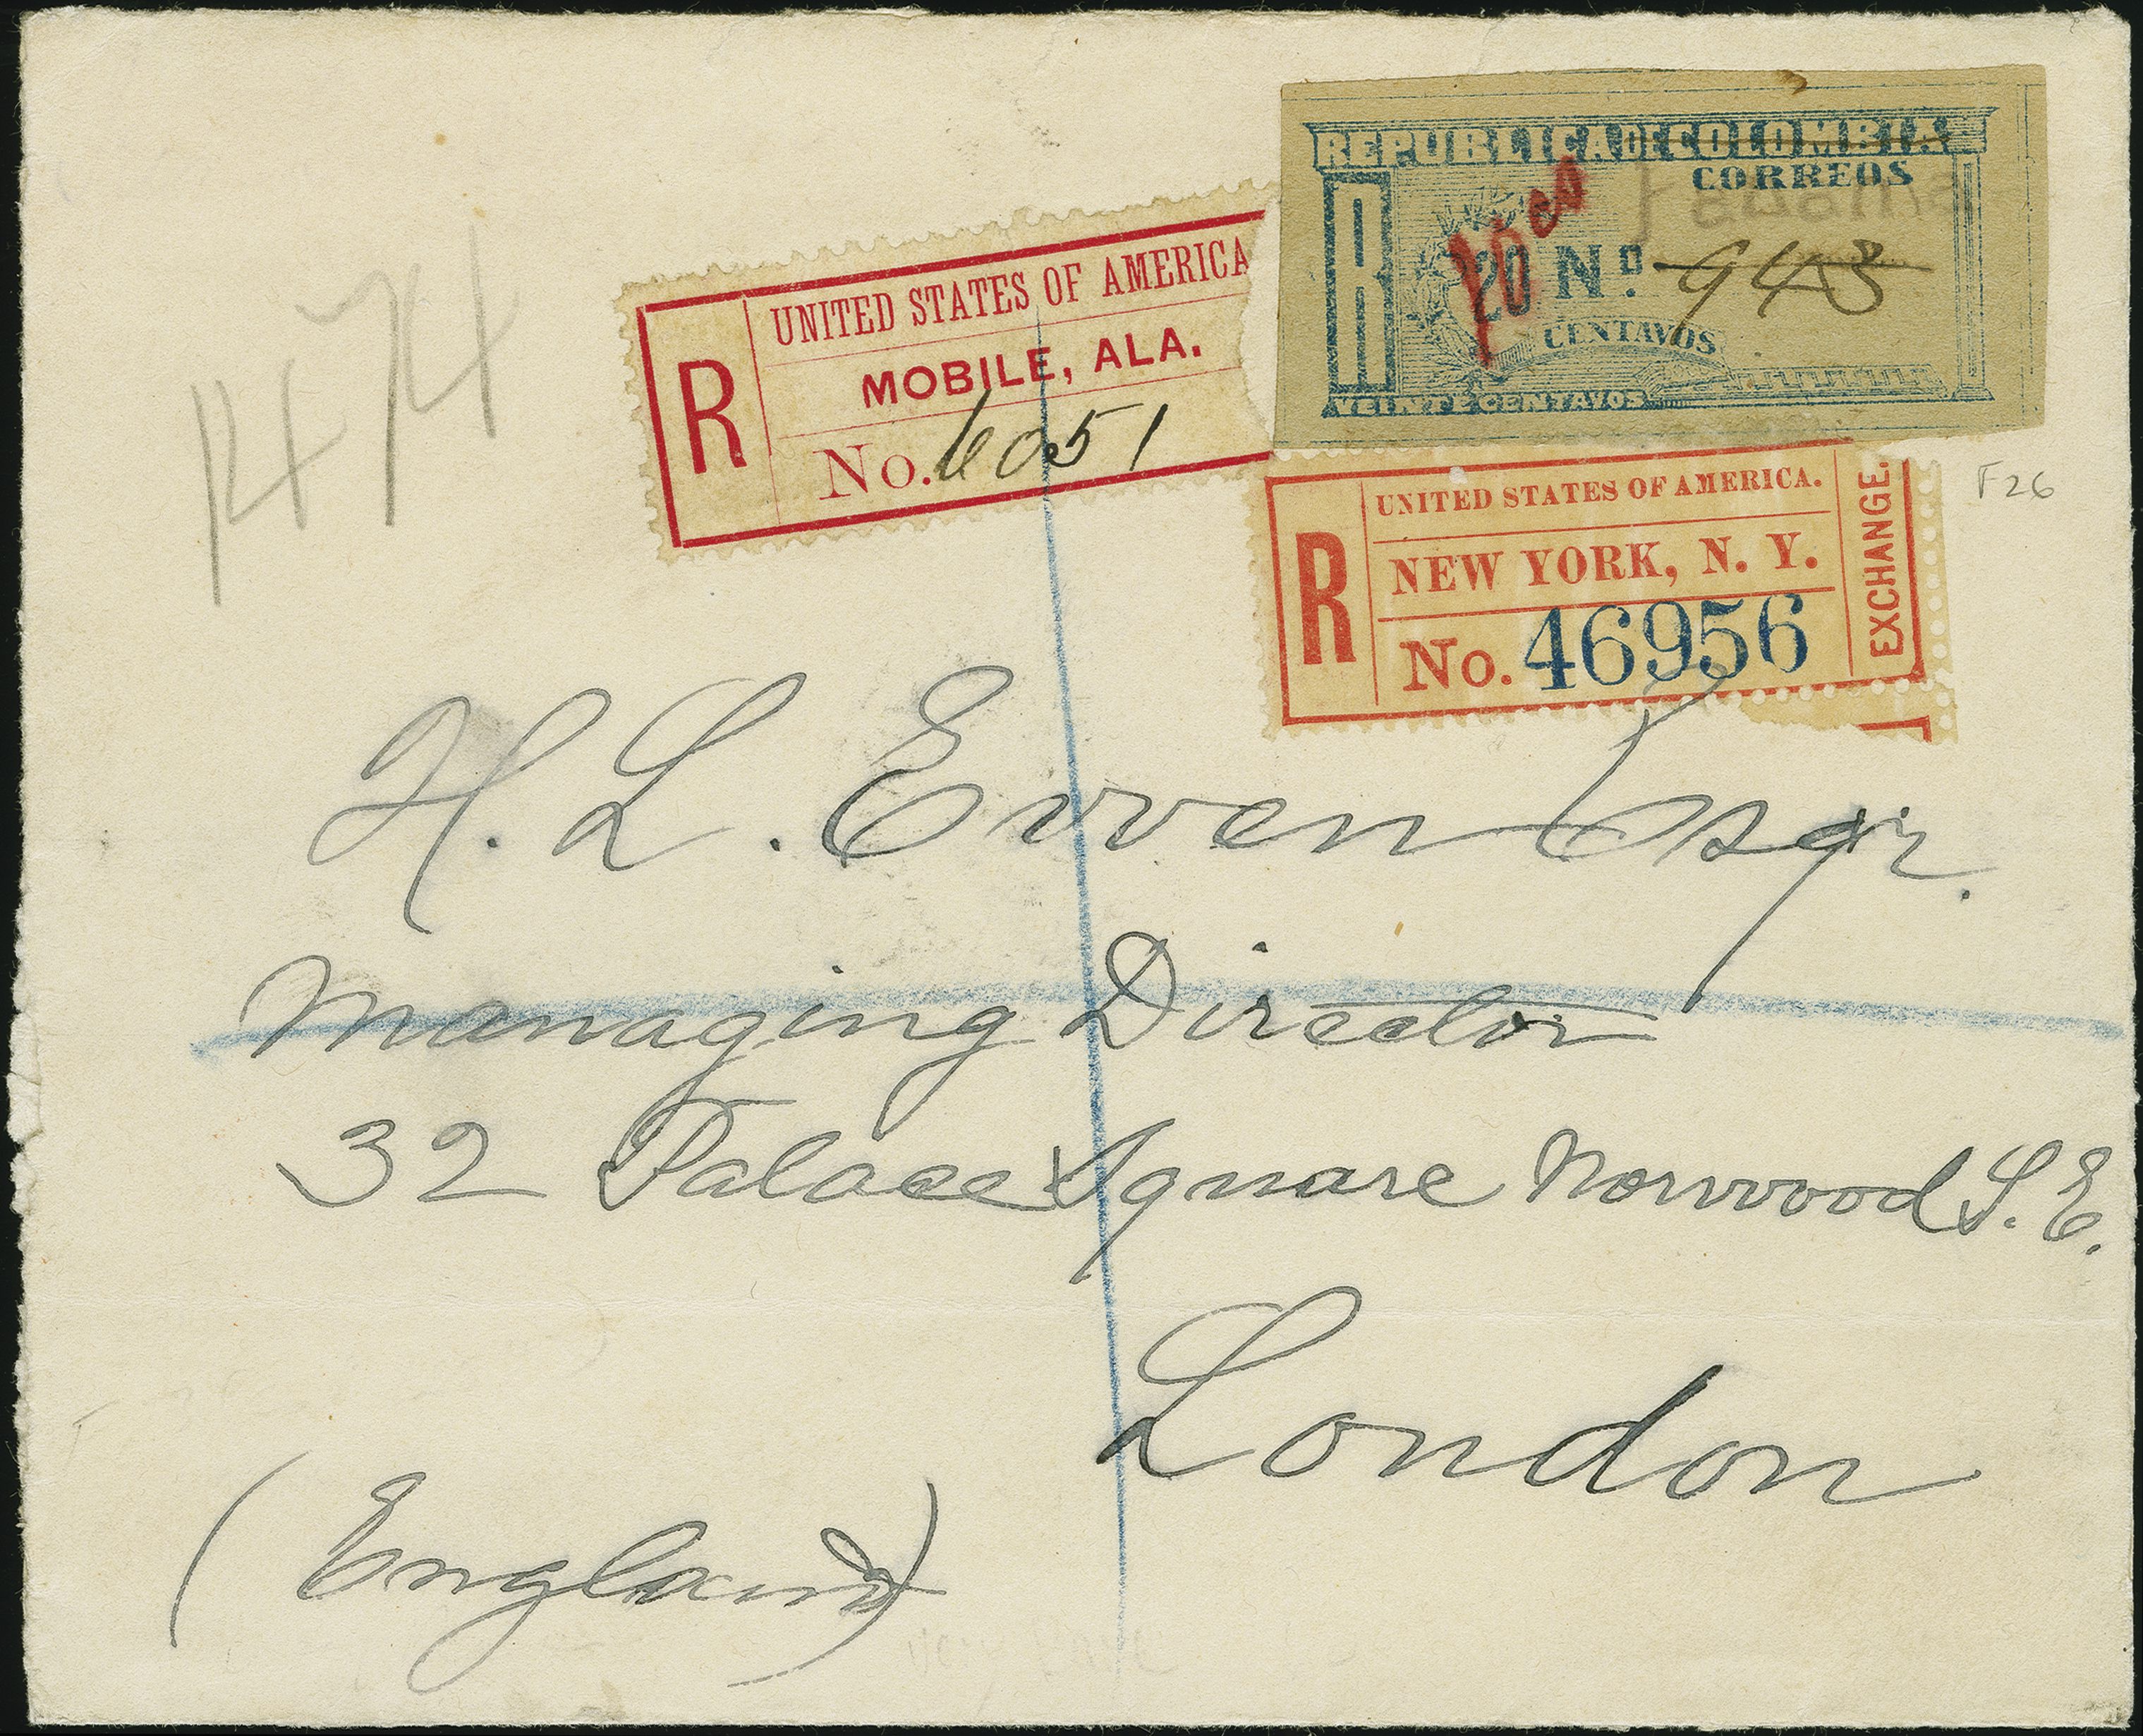 REPUBLICA DE COLOMBIA
CORREOS
R
20 Nº. 943
CENTAVOS
VEINTE CENTAVOS
UNITED STATES OF AMERICA
R
MOBILE, ALA.
No. 6051
UNITED STATES OF AMERICA.
R
NEW YORK, N. Y.
No. 46956
EXCHANGE.
F26
H. L. Ewen Esqr.
Managing Director
32 Palace Square Norwood S. E.
London
(England)